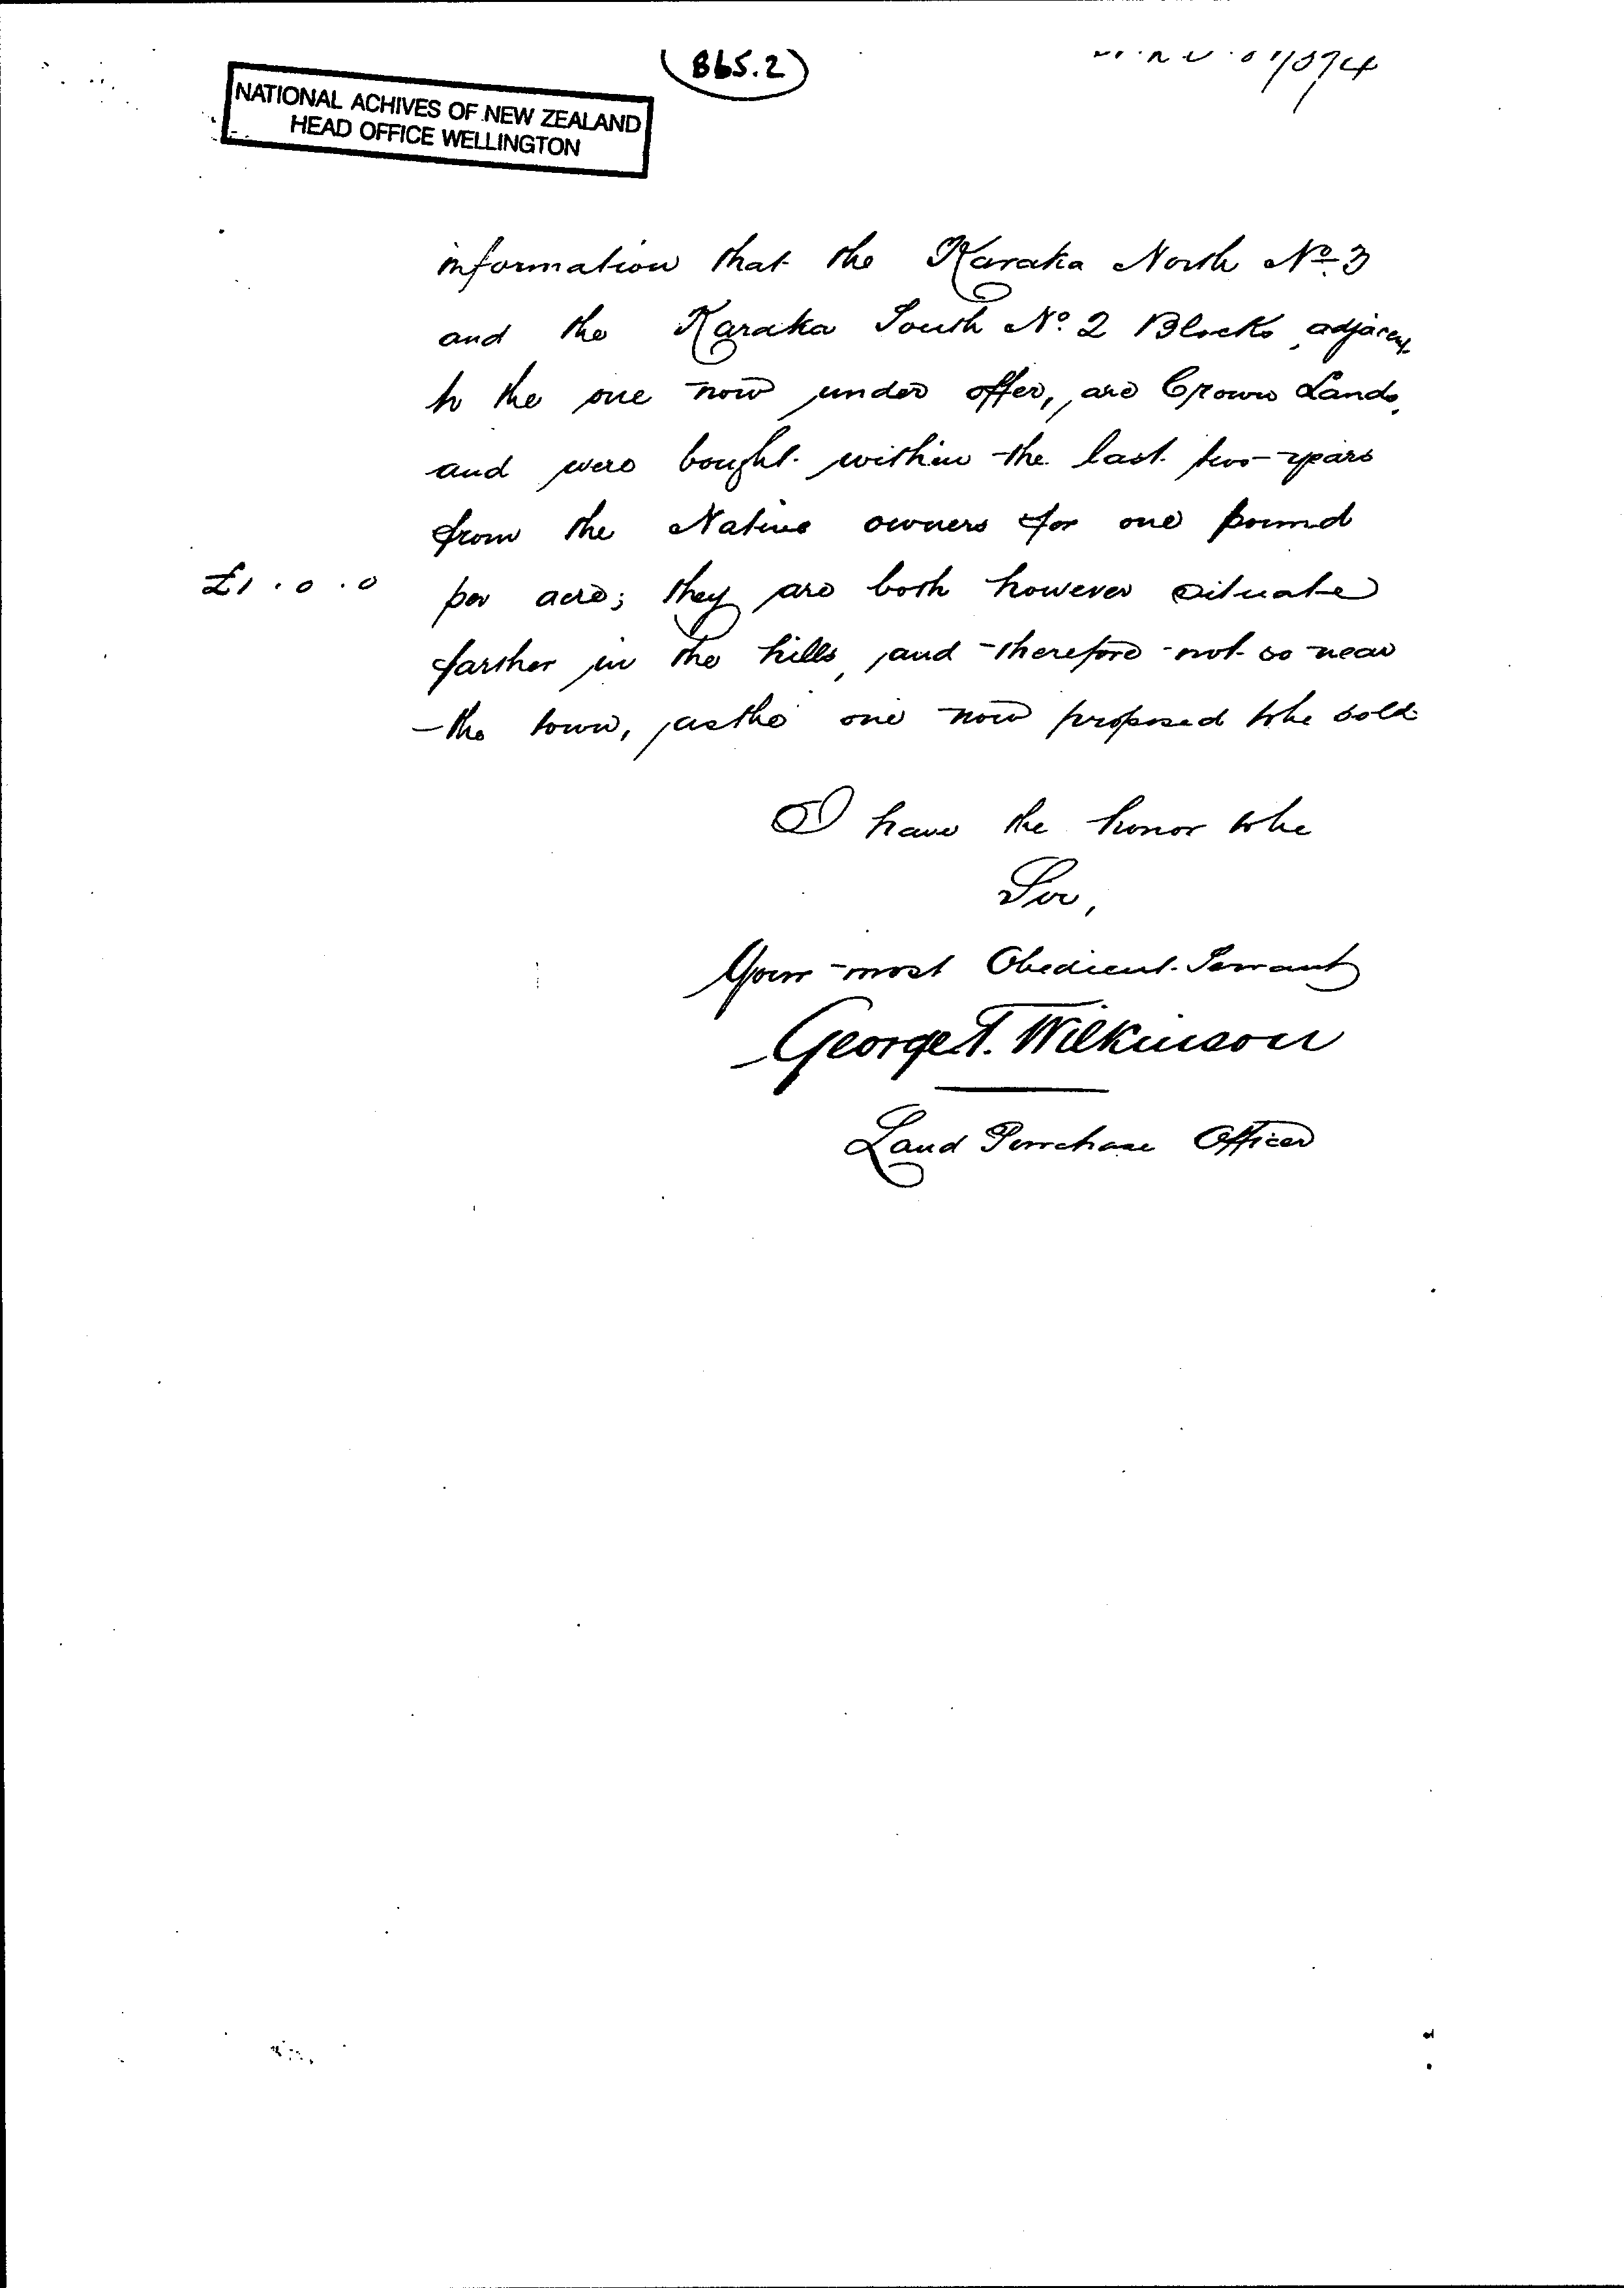 (865.2)
NATIONAL ACHIVES OF NEW ZEALAND
HEAD OFFICE WELLINGTON
information that the Karaka North No. 3
and the Karaka South No. 2 Blocks, adjacent
to the one now under offer, are Crown Lands,
and were bought within the last two years
from the Native owners for one pound
£1.0.0 per acre; they are both however situate
farther in the hills, and therefore not so near
the town, as the one now proposed to be sold
I have the honor to be
Sir,
Your most Obedient Servant
George T. Wilkinson
Land Purchase Officer